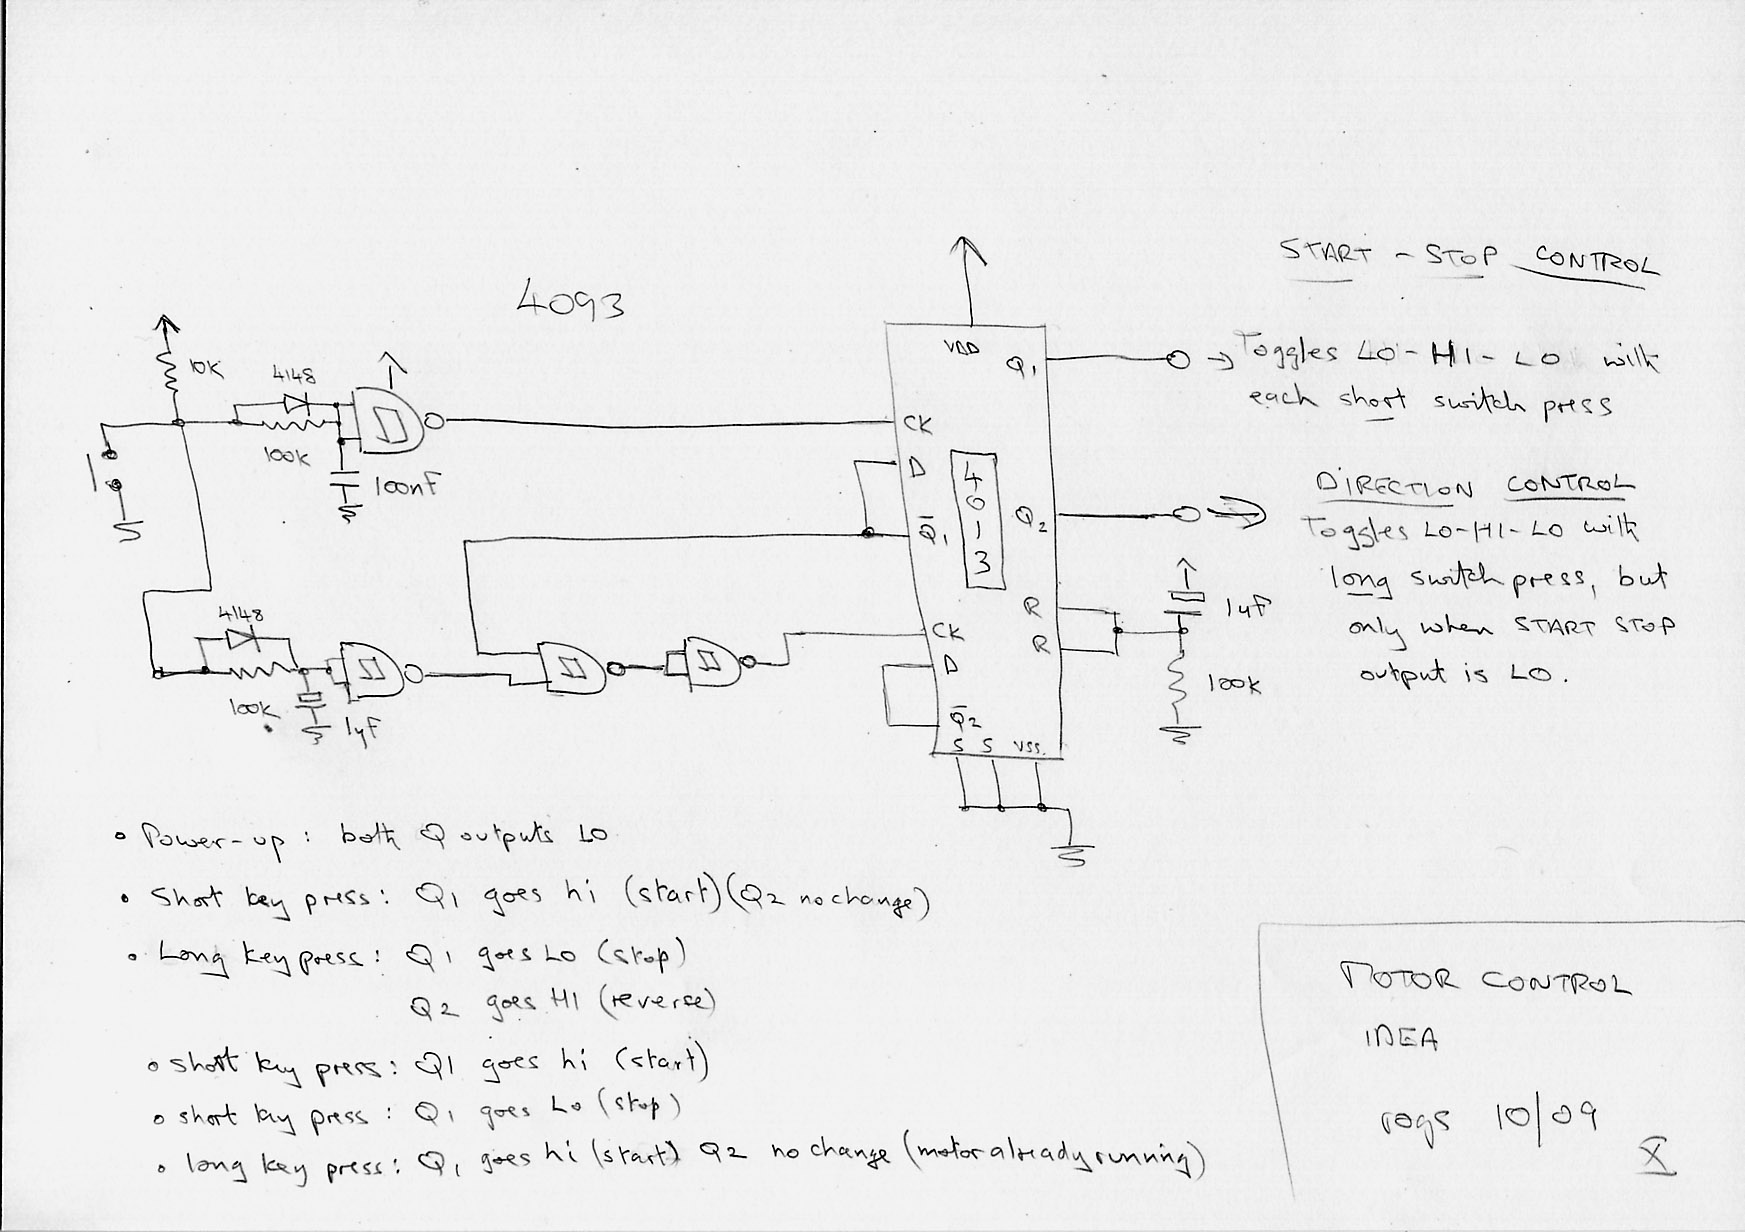 4093
START - STOP CONTROL
10K
4148
100K
100nF
VDD
Q1
→ Toggles LO-HI-LO with
each short switch press
CK
D
Q̅1
4013
Q2
DIRECTION CONTROL
Toggles LO-HI-LO with
long switch press, but
only when START STOP
output is LO.
R
R
1µF
100K
4148
100K
1µF
CK
D
Q̅2
S S VSS
• Power-up: both Q outputs LO
• Short key press: Q1 goes hi (start) (Q2 no change)
• Long key press: Q1 goes LO (stop)
Q2 goes HI (reverse)
• short key press: Q1 goes hi (start)
• short key press: Q1 goes Lo (stop)
• long key press: Q1 goes hi (start) Q2 no change (motor already running)
MOTOR CONTROL
IDEA
rogs 10/09
X